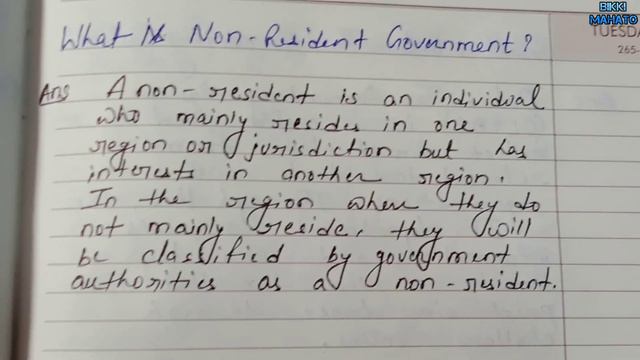 BIKKI
MAHATO
TUESDA
265-
What is Non-Resident Government?
Ans A non-resident is an individual
who mainly resides in one
region or jurisdiction but has
interests in another region.
In the region where they do
not mainly reside, they will
be classified by government
authorities as a non-resident.